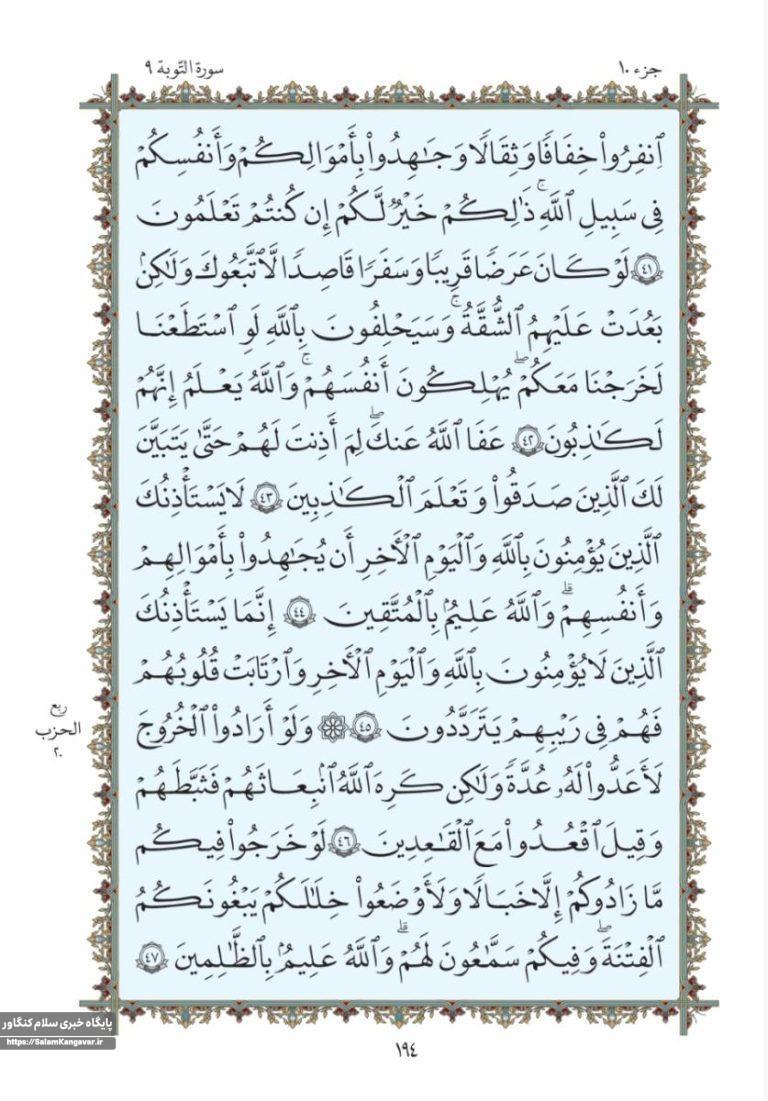 جزء ١٠
سورة التّوبة ٩
ٱنفِرُوا۟ خِفَافًا وَثِقَالًا وَجَـٰهِدُوا۟ بِأَمْوَٰلِكُمْ وَأَنفُسِكُمْ
فِى سَبِيلِ ٱللَّهِ ۚ ذَٰلِكُمْ خَيْرٌ لَّكُمْ إِن كُنتُمْ تَعْلَمُونَ
٤١ لَوْ كَانَ عَرَضًا قَرِيبًا وَسَفَرًا قَاصِدًا لَّٱتَّبَعُوكَ وَلَـٰكِنۢ
بَعُدَتْ عَلَيْهِمُ ٱلشُّقَّةُ ۚ وَسَيَحْلِفُونَ بِٱللَّهِ لَوِ ٱسْتَطَعْنَا
لَخَرَجْنَا مَعَكُمْ ۖ يُهْلِكُونَ أَنفُسَهُمْ ۚ وَٱللَّهُ يَعْلَمُ إِنَّهُمْ
لَكَـٰذِبُونَ ٤٢ عَفَا ٱللَّهُ عَنكَ ۖ لِمَ أَذِنتَ لَهُمْ حَتَّىٰ يَتَبَيَّنَ
لَكَ ٱلَّذِينَ صَدَقُوا۟ وَتَعْلَمَ ٱلْكَـٰذِبِينَ ٤٣ لَا يَسْتَأْذِنُكَ
ٱلَّذِينَ يُؤْمِنُونَ بِٱللَّهِ وَٱلْيَوْمِ ٱلْـَٔاخِرِ أَن يُجَـٰهِدُوا۟ بِأَمْوَٰلِهِمْ
وَأَنفُسِهِمْ ۗ وَٱللَّهُ عَلِيمٌۢ بِٱلْمُتَّقِينَ ٤٤ إِنَّمَا يَسْتَأْذِنُكَ
ٱلَّذِينَ لَا يُؤْمِنُونَ بِٱللَّهِ وَٱلْيَوْمِ ٱلْـَٔاخِرِ وَٱرْتَابَتْ قُلُوبُهُمْ
فَهُمْ فِى رَيْبِهِمْ يَتَرَدَّدُونَ ٤٥ ۞ وَلَوْ أَرَادُوا۟ ٱلْخُرُوجَ
ربع
الحزب
٢٠
لَأَعَدُّوا۟ لَهُۥ عُدَّةً وَلَـٰكِن كَرِهَ ٱللَّهُ ٱنۢبِعَاثَهُمْ فَثَبَّطَهُمْ
وَقِيلَ ٱقْعُدُوا۟ مَعَ ٱلْقَـٰعِدِينَ ٤٦ لَوْ خَرَجُوا۟ فِيكُم
مَّا زَادُوكُمْ إِلَّا خَبَالًا وَلَأَوْضَعُوا۟ خِلَـٰلَكُمْ يَبْغُونَكُمُ
ٱلْفِتْنَةَ ۖ وَفِيكُمْ سَمَّـٰعُونَ لَهُمْ ۗ وَٱللَّهُ عَلِيمٌۢ بِٱلظَّـٰلِمِينَ ٤٧
١٩٤
پایگاه خبری سلام کنگاور
https://SalamKangavar.ir